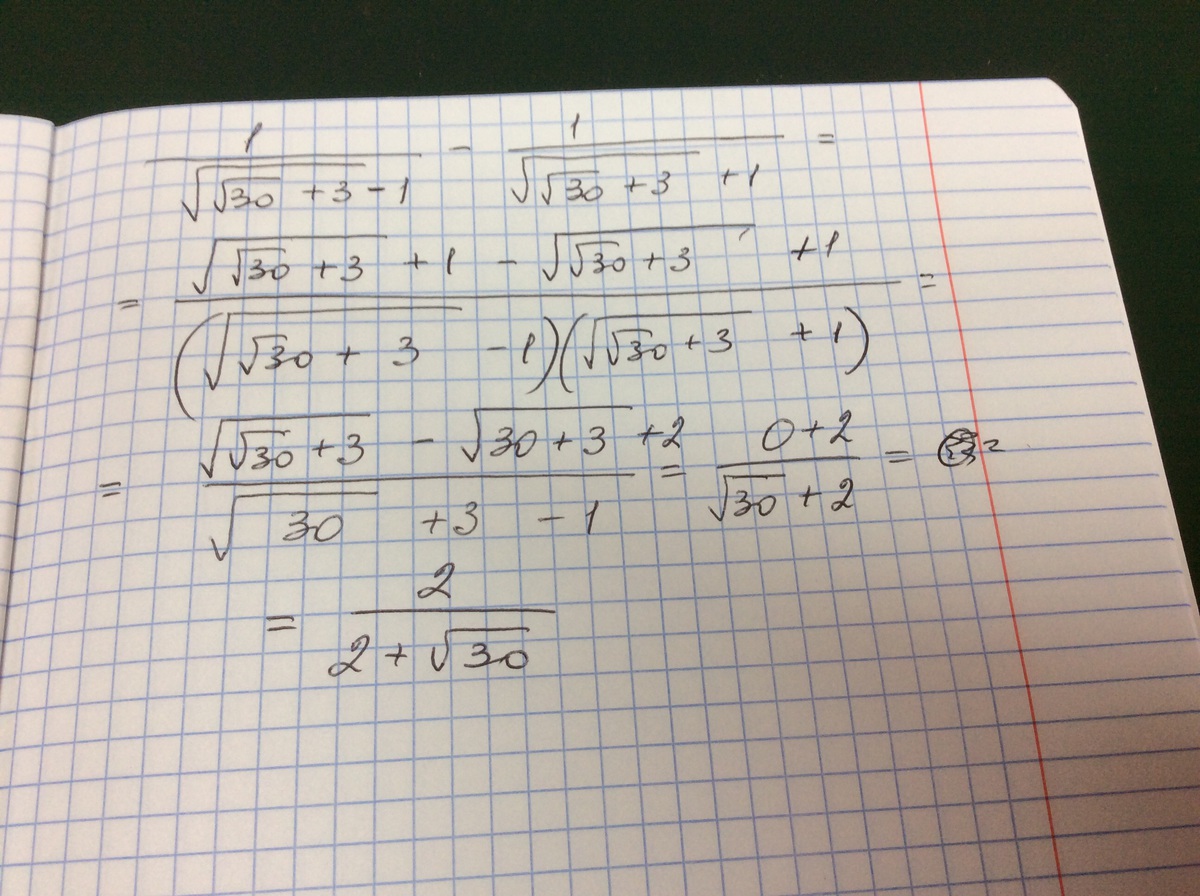 1/(√(√30 + 3) - 1) - 1/(√(√30 + 3) + 1) =
= (√(√30 + 3) + 1 - √(√30 + 3) + 1)/((√(√30 + 3) - 1)(√(√30 + 3) + 1)) =
= (√(√30 + 3) - √(30 + 3) + 2)/(√30 + 3 - 1) = (0 + 2)/(√30 + 2) =
= 2/(2 + √30)